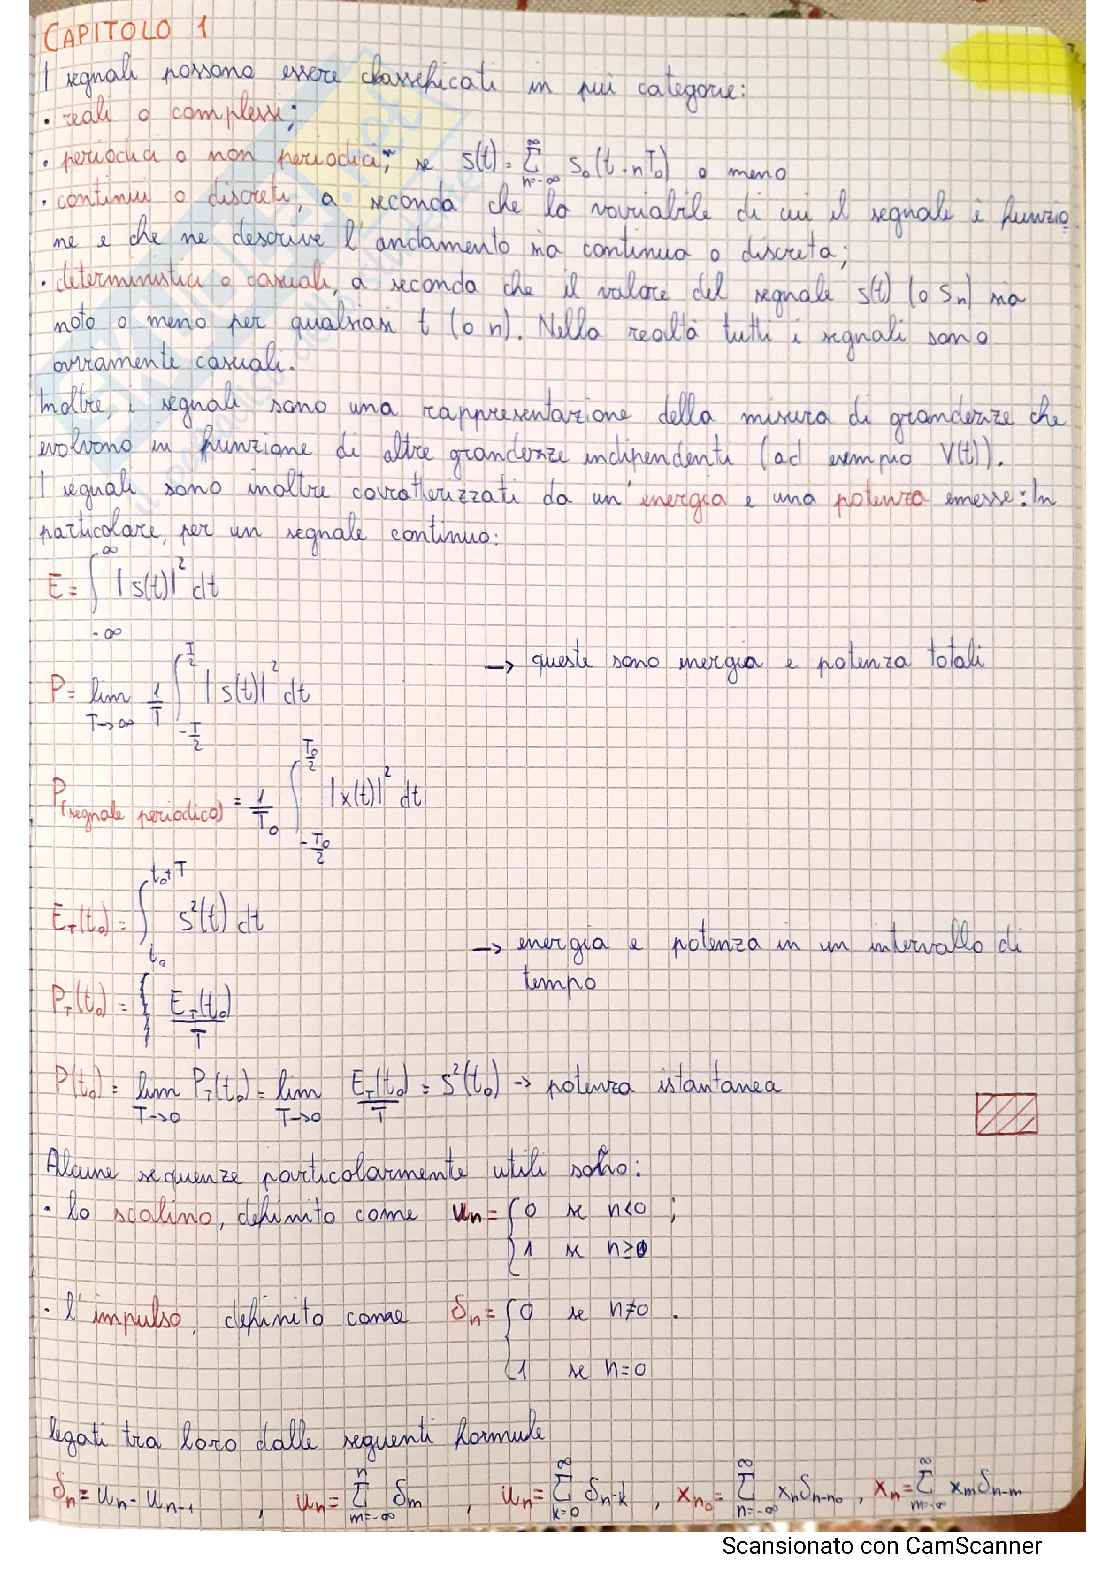 CAPITOLO 1
I segnali possono essere classificati in più categorie:
• reali o complessi;
• periodici o non periodici, se s(t) = ∑_{n=-∞}^{∞} s₀(t - nT₀) o meno
• continui o discreti, a seconda che la variabile di cui il segnale è funzio
ne e che ne descrive l'andamento sia continua o discreta;
• deterministici o casuali, a seconda che il valore del segnale s(t) (o Sn) sia
noto o meno per qualsiasi t (o n). Nella realtà tutti i segnali sono
ovviamente casuali.
Inoltre, i segnali sono una rappresentazione della misura di grandezze che
evolvono in funzione di altre grandezze indipendenti (ad esempio V(t)).
I segnali sono inoltre caratterizzati da un'energia e una potenza emesse: In
particolare, per un segnale continuo:
E = ∫_{-∞}^{∞} |s(t)|² dt
→ queste sono energia e potenza totali
P = lim_{T→∞} 1/T ∫_{-T/2}^{T/2} |s(t)|² dt
P(segnale periodico) = 1/T₀ ∫_{-T₀/2}^{T₀/2} |x(t)|² dt
E_T(t₀) = ∫_{t₀}^{t₀+T} s²(t) dt
→ energia e potenza in un intervallo di
tempo
P_T(t₀) = { E_T(t₀)/T
P(t₀) = lim_{T→0} P_T(t₀) = lim_{T→0} E_T(t₀)/T = s²(t₀) → potenza istantanea
Alcune sequenze particolarmente utili sono:
• lo scalino, definito come u_n = { 0 se n<0 ;
1 se n≥0
• l'impulso, definito come δ_n = { 0 se n≠0 .
1 se n=0
legati tra loro dalle seguenti formule
δ_n = u_n - u_{n-1} , u_n = ∑_{m=-∞}^{n} δ_m , u_n = ∑_{k=0}^{∞} δ_{n-k} , x_{n₀} = ∑_{n=-∞}^{∞} x_n δ_{n-n₀} , x_n = ∑_{m=-∞}^{∞} x_m δ_{n-m}
Scansionato con CamScanner